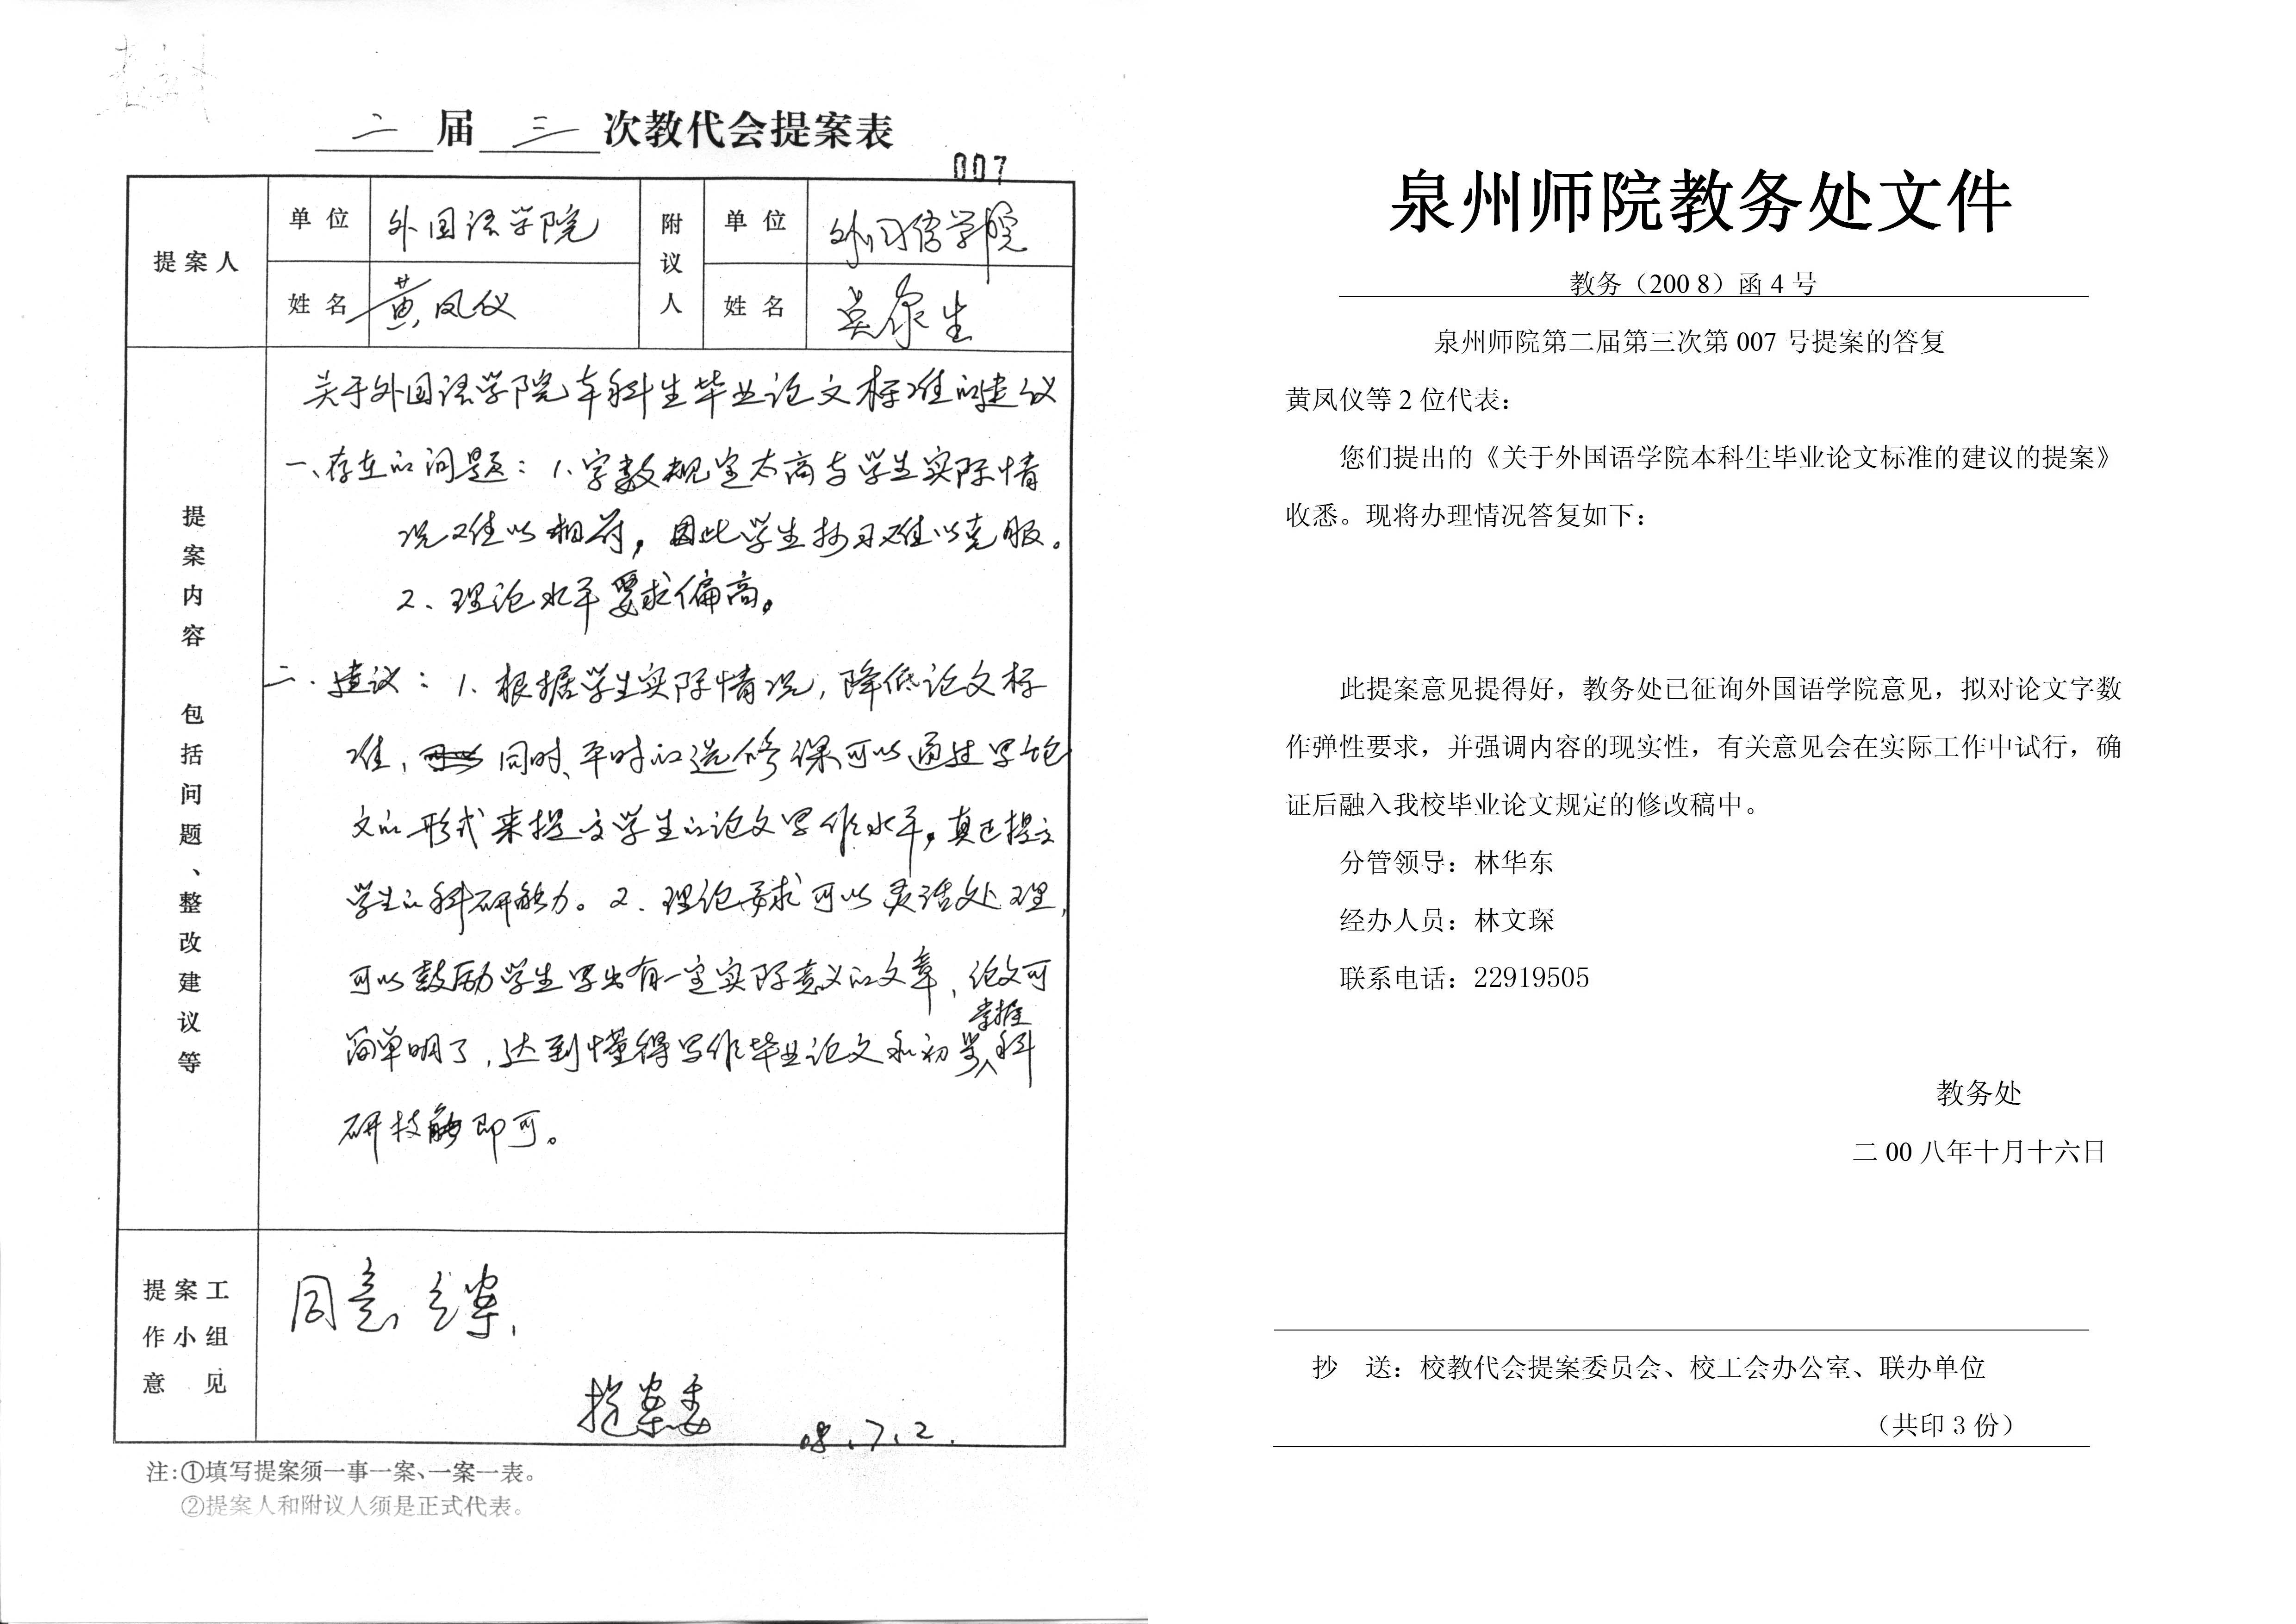 二届三次教代会提案表
007
提案人
单位
外国语学院
附议人
单位
外国语学院
姓名
黄凤仪
姓名
吴家生
提案内容 包括问题、整改建议等
关于外国语学院本科生毕业论文标准的建议
一、存在的问题：1、字数规定太高与学生实际情
况难以相符，因此学生抄习难以克服。
2、理论水平要求偏高。
二、建议：1、根据学生实际情况，降低论文标
准，同时、平时的选修课可以通过写论
文的形式来提高学生的论文写作水平，真正提高
学生的科研能力。2、理论要求可以灵活处理，
可以鼓励学生写出有一定实际意义的文章，论文可
简单明了，达到懂得写作毕业论文和初掌握科
研技能即可。
提案工
作小组
意见
同意立案，
提案委
08.7.2.
注:①填写提案须一事一案、一案一表。
②提案人和附议人须是正式代表。
泉州师院教务处文件
教务（200 8）函 4 号
泉州师院第二届第三次第 007 号提案的答复
黄凤仪等 2 位代表：
您们提出的《关于外国语学院本科生毕业论文标准的建议的提案》
收悉。现将办理情况答复如下：
此提案意见提得好，教务处已征询外国语学院意见，拟对论文字数
作弹性要求，并强调内容的现实性，有关意见会在实际工作中试行，确
证后融入我校毕业论文规定的修改稿中。
分管领导：林华东
经办人员：林文琛
联系电话：22919505
教务处
二 00 八年十月十六日
抄　送：校教代会提案委员会、校工会办公室、联办单位
（共印 3 份）